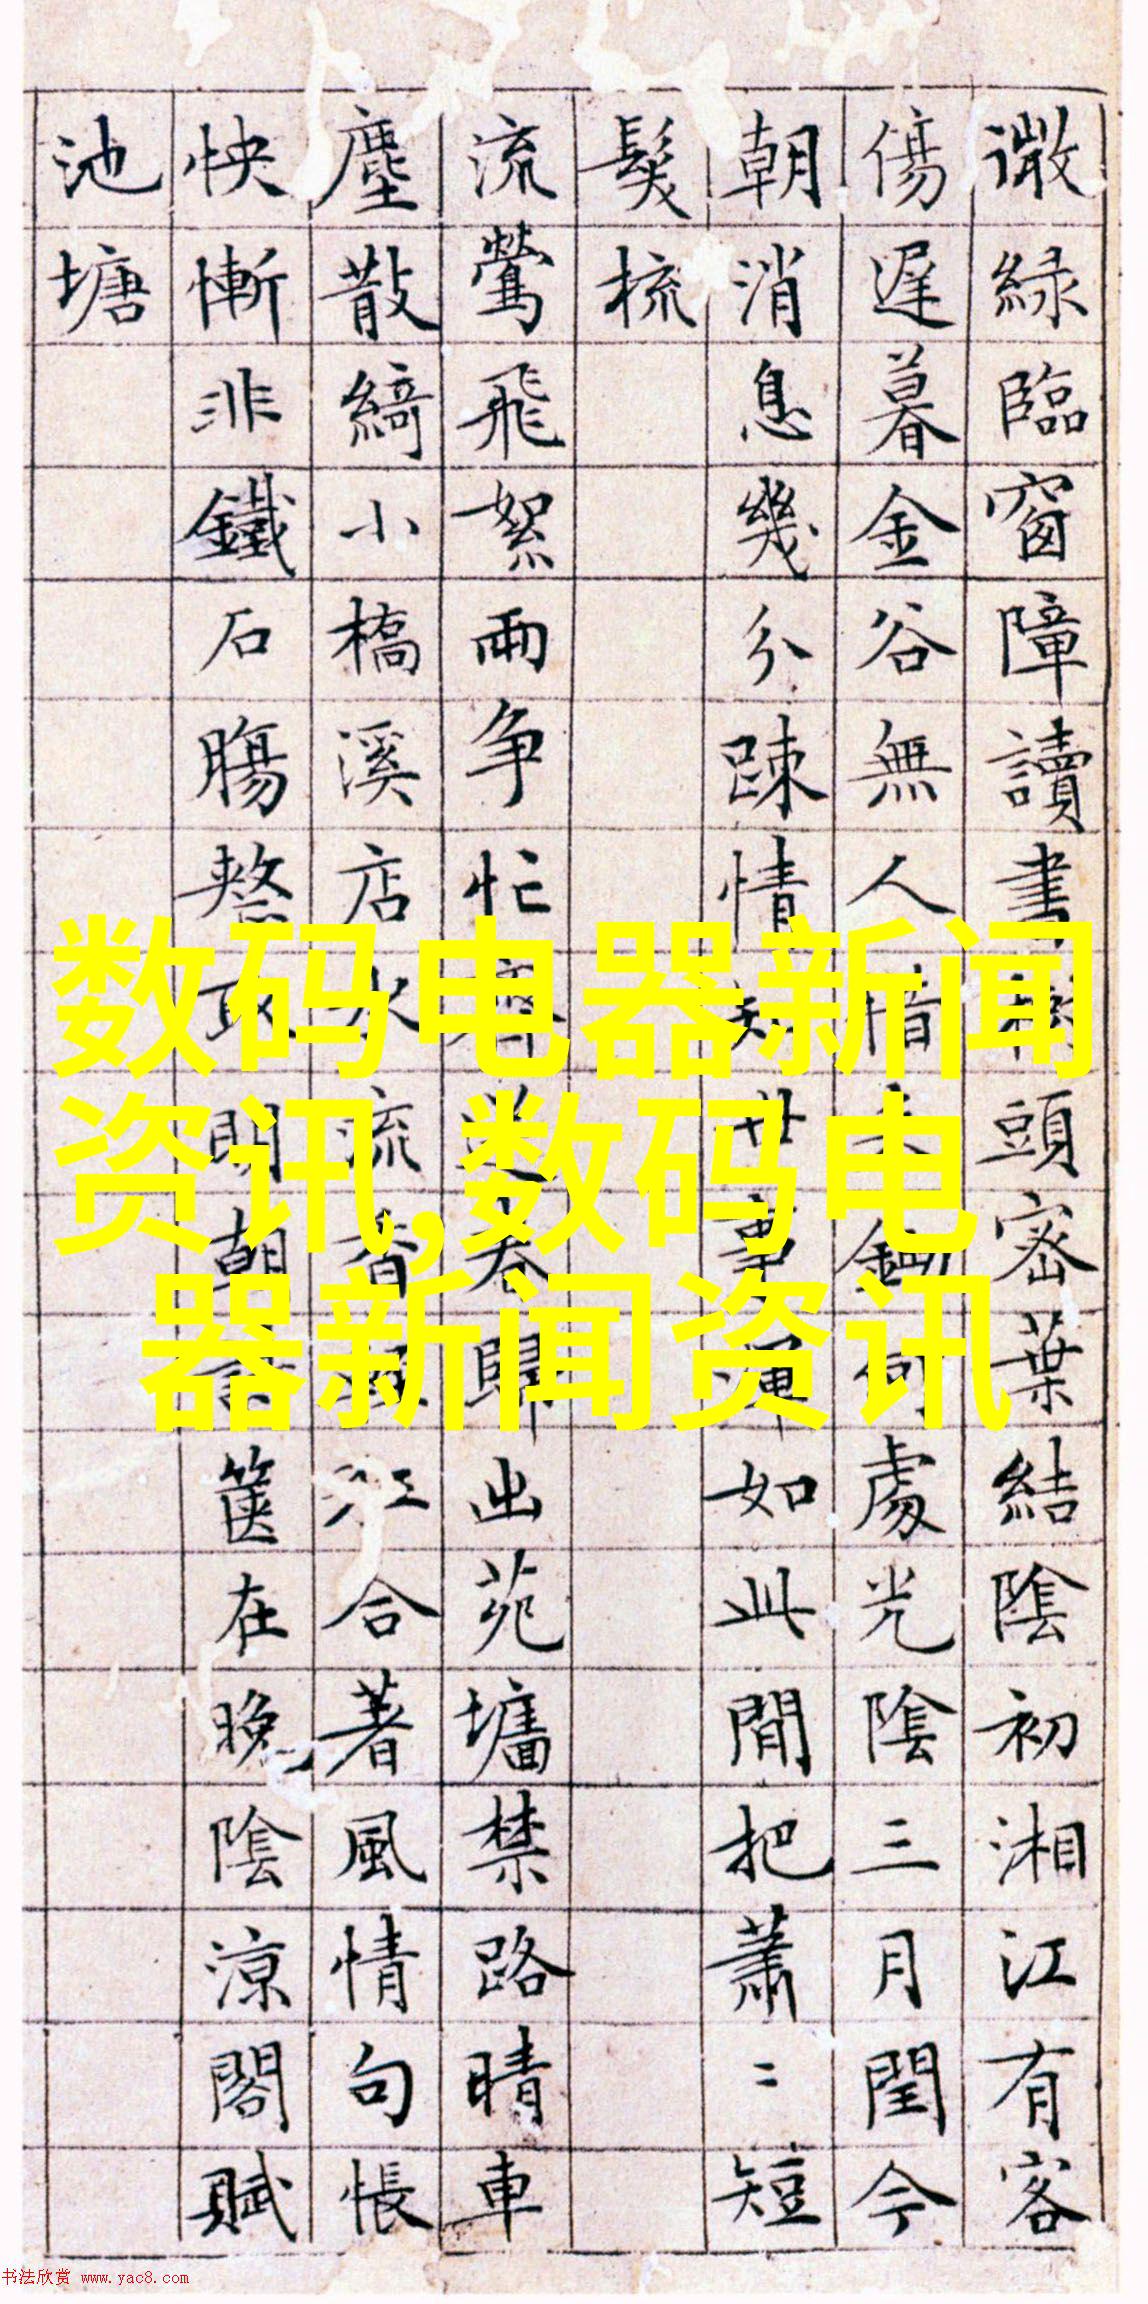 微綠臨窗障讀書頭密葉結陰初湘江有客
傷遲暮金谷無人惜處光陰三月閏今
朝消息幾分踈情世事渾如此閒把蕭〻短
髮梳
流鶯飛絮兩争忙春歸出苑墻禁路晴車
塵散綺小橋溪店水流香江合著風情句悵
怏慚非鐵石腸朝篋在晚陰涼閣賦
池塘
数码电器新闻
资讯,数码电
器新闻资讯
书法欣赏 www.yac8.com